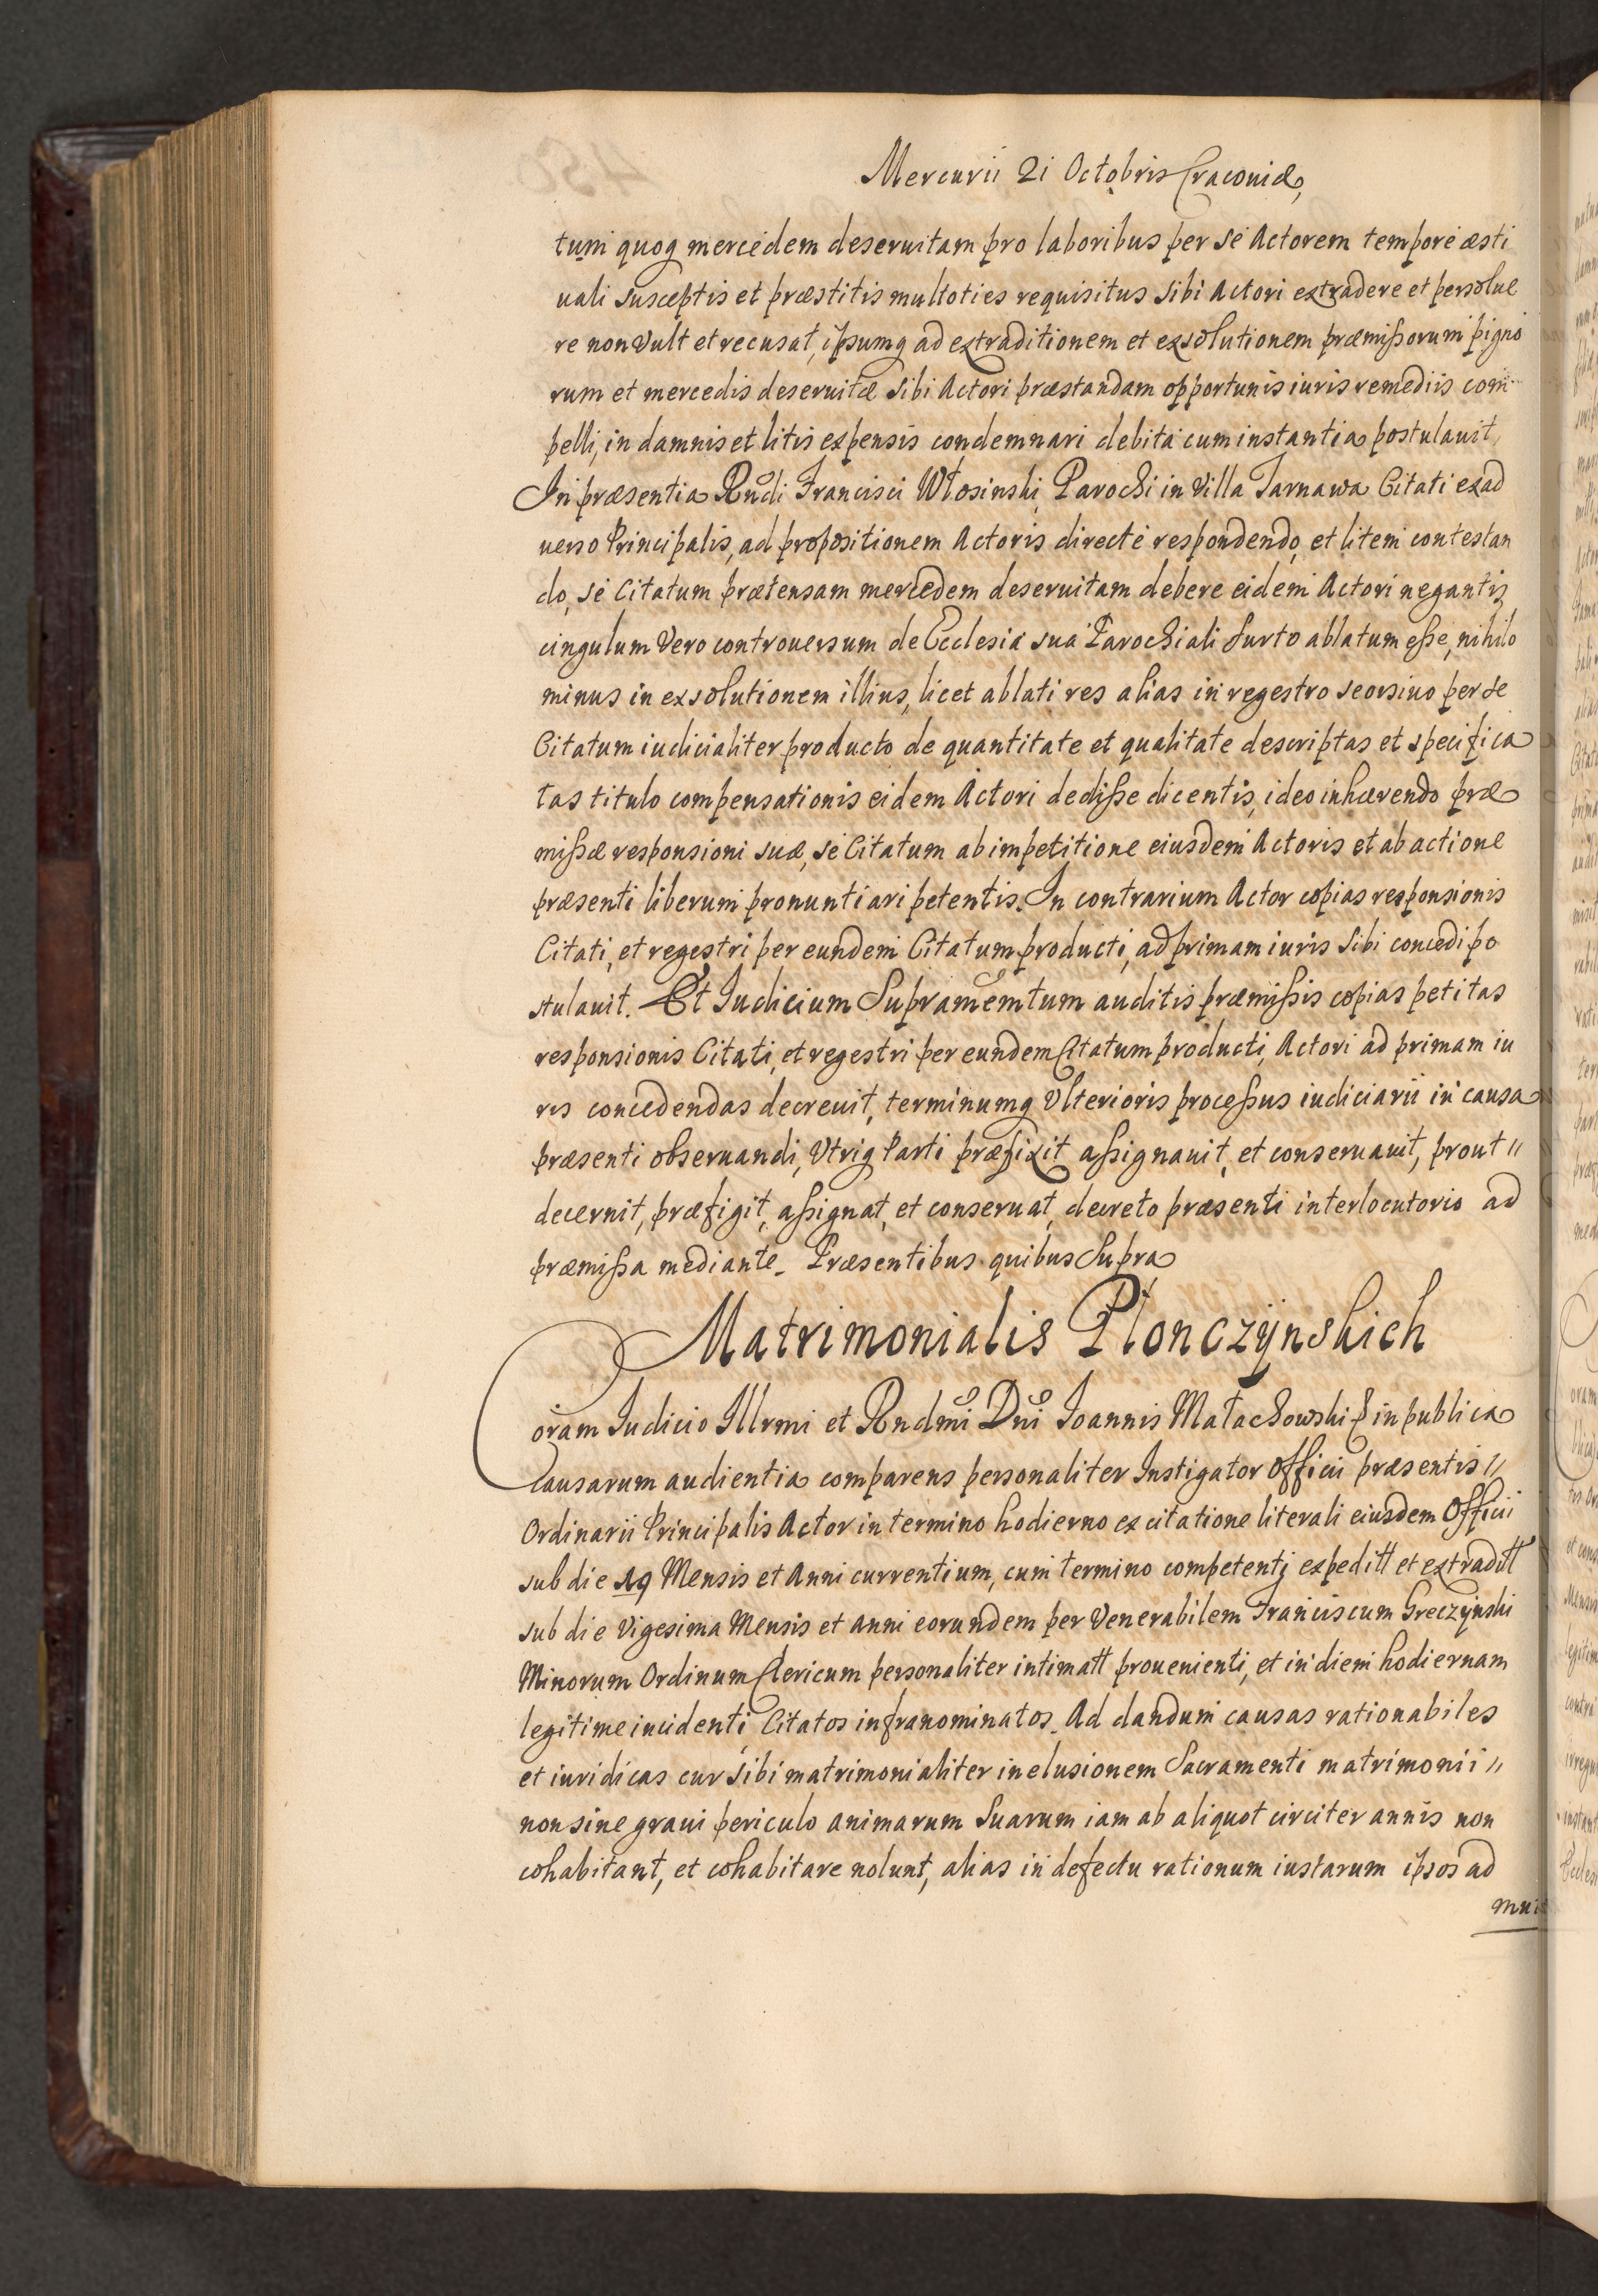 Mercurii 21 Octobris Cracouiæ,
tum quoq mercedem deseruitam pro laboribus per se Actorem tempore æsti
uali susceptis et præstitis multoties requisitus sibi Actori extradere et persolue
re non vult et recusat, ipsumq ad extraditionem et exsolutionem præmissorum pigno
rum et mercedis deseruitæ sibi Actori præstandam opportunis iuris remediis com
pelli, in damnis et litis expensis condemnari debita cum instantia postulauit,
In præsentia Rndi Francisci Włosinski, Parochi in Villa Tarnawa Citati ex ad
uerso Principalis, ad propositionem Actoris directe respondendo, et litem contestan
do, se Citatum prætensam mercedem deseruitam debere eidem Actori negantis
cingulum vero controuersum de Ecclesia sua Parochiali furto ablatum esse, nihilo
minus in exsolutionem illius, licet ablati res alias in regestro seorsiuo per se
Citatum iudicialiter producto de quantitate et qualitate descriptas et specifica
tas titulo compensationis eidem Actori dedisse dicentis, ideo inhærendo præ
missæ responsioni suæ, se Citatum ab impetitione eiusdem Actoris et ab actione
præsenti liberum pronuntiari petentis. In contrarium Actor copias responsionis
Citati, et regestri per eundem Citatum producti, ad primam iuris sibi concedi po
stulauit. Et Iudicium Supramemtum auditis præmissis copias petitas
responsionis Citati, et regestri per eundem Citatum producti, Actori ad primam iu
ris concedendas decreuit, terminumq Vlterioris processus iudiciarii in causa
præsenti obseruandi, Vtriq Parti præfixit assignauit, et conseruauit, prout //
decernit, præfigit, assignat, et conseruat, decreto præsenti interlocutorio ad
præmissa mediante. Præsentibus quibus Supra
Matrimonialis Płonczÿnskich
Coram Iudicio Illrmi et Rndmi Dni Ioannis Małachowski in publica
Causarum audientia comparens personaliter Instigator Officii præsentis //
Ordinarii Principalis Actor in termino hodierno ex citatione literali eiusdem Officii
sub die 19 Mensis et Anni currentium, cum termino competenti expeditt et extraditt
sub die Vigesima Mensis et anni eorundem per Venerabilem Franciscum Greczÿnski
Minorum Ordinum Clericum personaliter intimatt prouenienti, et in diem hodiernam
legitime incidenti Citatos infranominatos. Ad dandum causas rationabiles
et iuridicas cur sibi matrimonialiter in elusionem Sacramenti matrimonii //
non sine graui periculo animarum suarum iam ab aliquot circiter annis non
cohabitant, et cohabitare nolunt, alias in defectu rationum iustarum ipsos ad